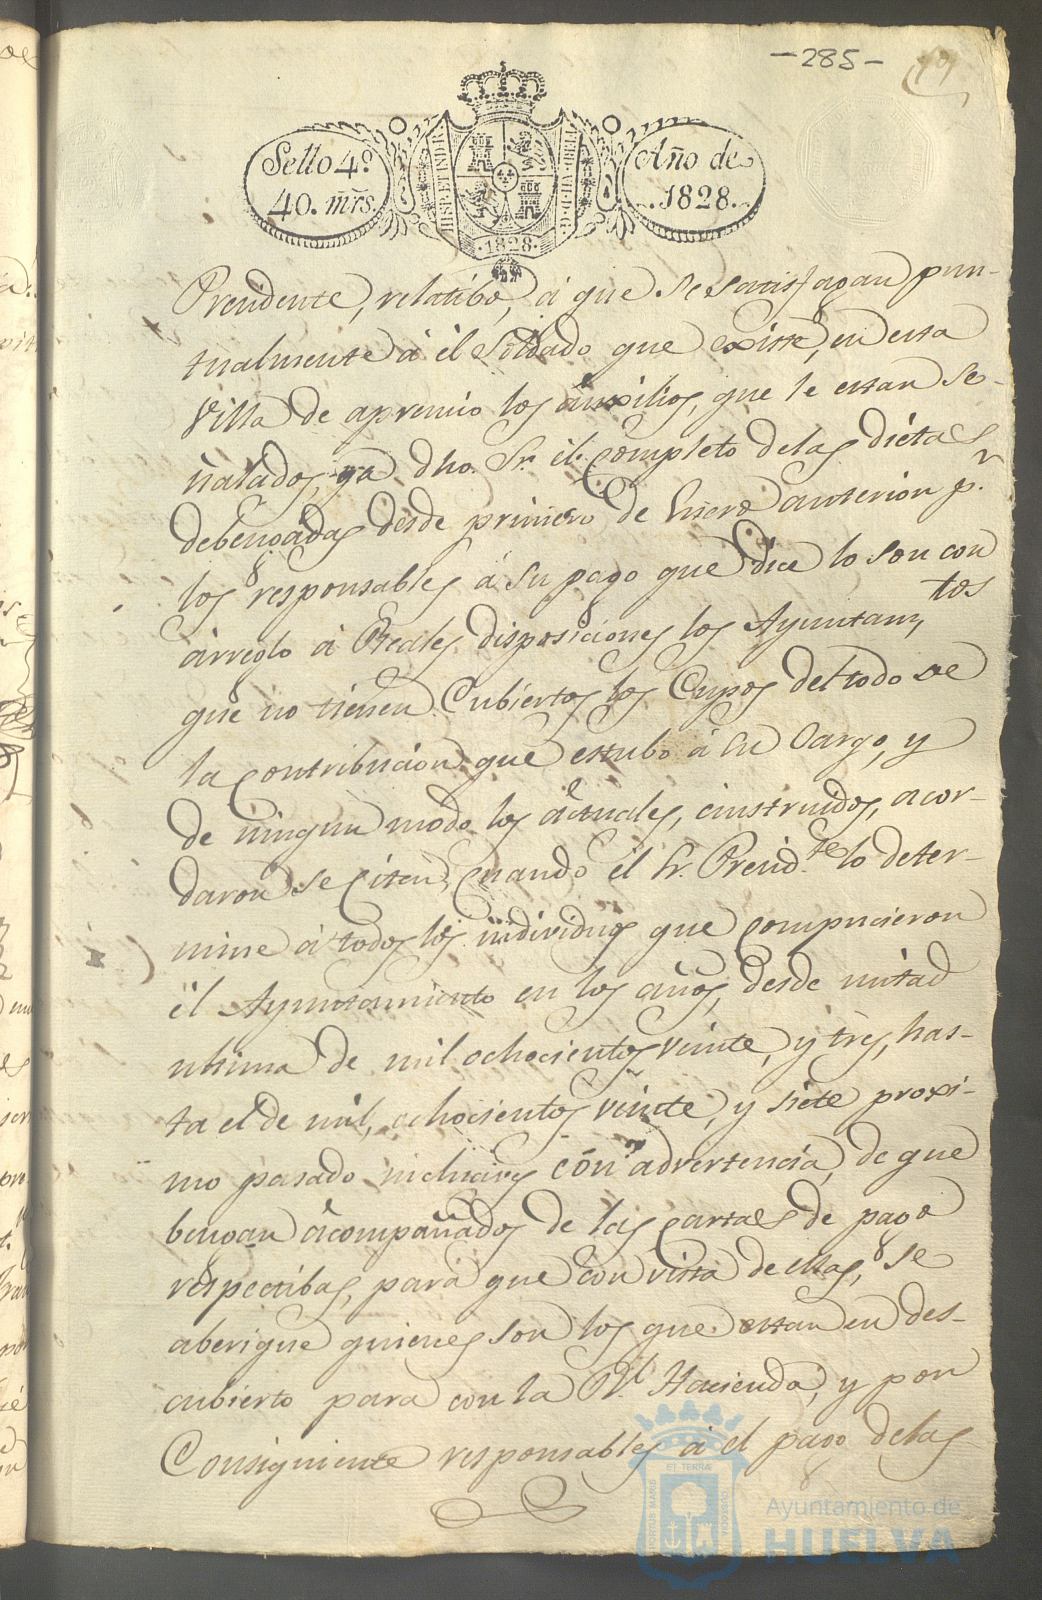 -285-
Sello 4º
40. mr̃s.
HISP. ET IND. R.
FERD. VII. D. G.
·1828·
Año de
1828.
Presidente, relatibo, á que se satisfagan pun-
tualmente á él Soldado que existe, en esta
Villa de apremio los áuxilios, que le estan se-
ñalados, ya dho. Sr. él completo delas diétas
debengadas desde primero de Enero anterior p.r
los responsables á su pago que dice lo son con
árreglo á Reales disposiciones los Ayuntam,tos
que no tienen Cubiertos los Cupos del todo de
la contribucion que estubo á su Cargo, y
de ningun modo los áctuales, einstruidos, acor-
daron se Citen, Cuando él Sr. Presid.te lo deter-
mine á todos los individuos que compucieron
él Ayuntamiento en los años, desde mitad
ultima de mil ochocientos veinte, y tres, has-
ta el de mil, ochocientos veinte, y siete proxi-
mo pasado inclucive, cón advertencia, de que
bengan ácompañados de las cartas de pago
respectibas, pará que con vista de ellas, se
aberigue quienes son los que estan en des-
cubierto para con la Rl. Hacienda, y por
Consiguiente responsables á el pago delas
PORTUS MARIS
ET TERRÆ
CUSTODIA
Ayuntamiento de
HUELVA